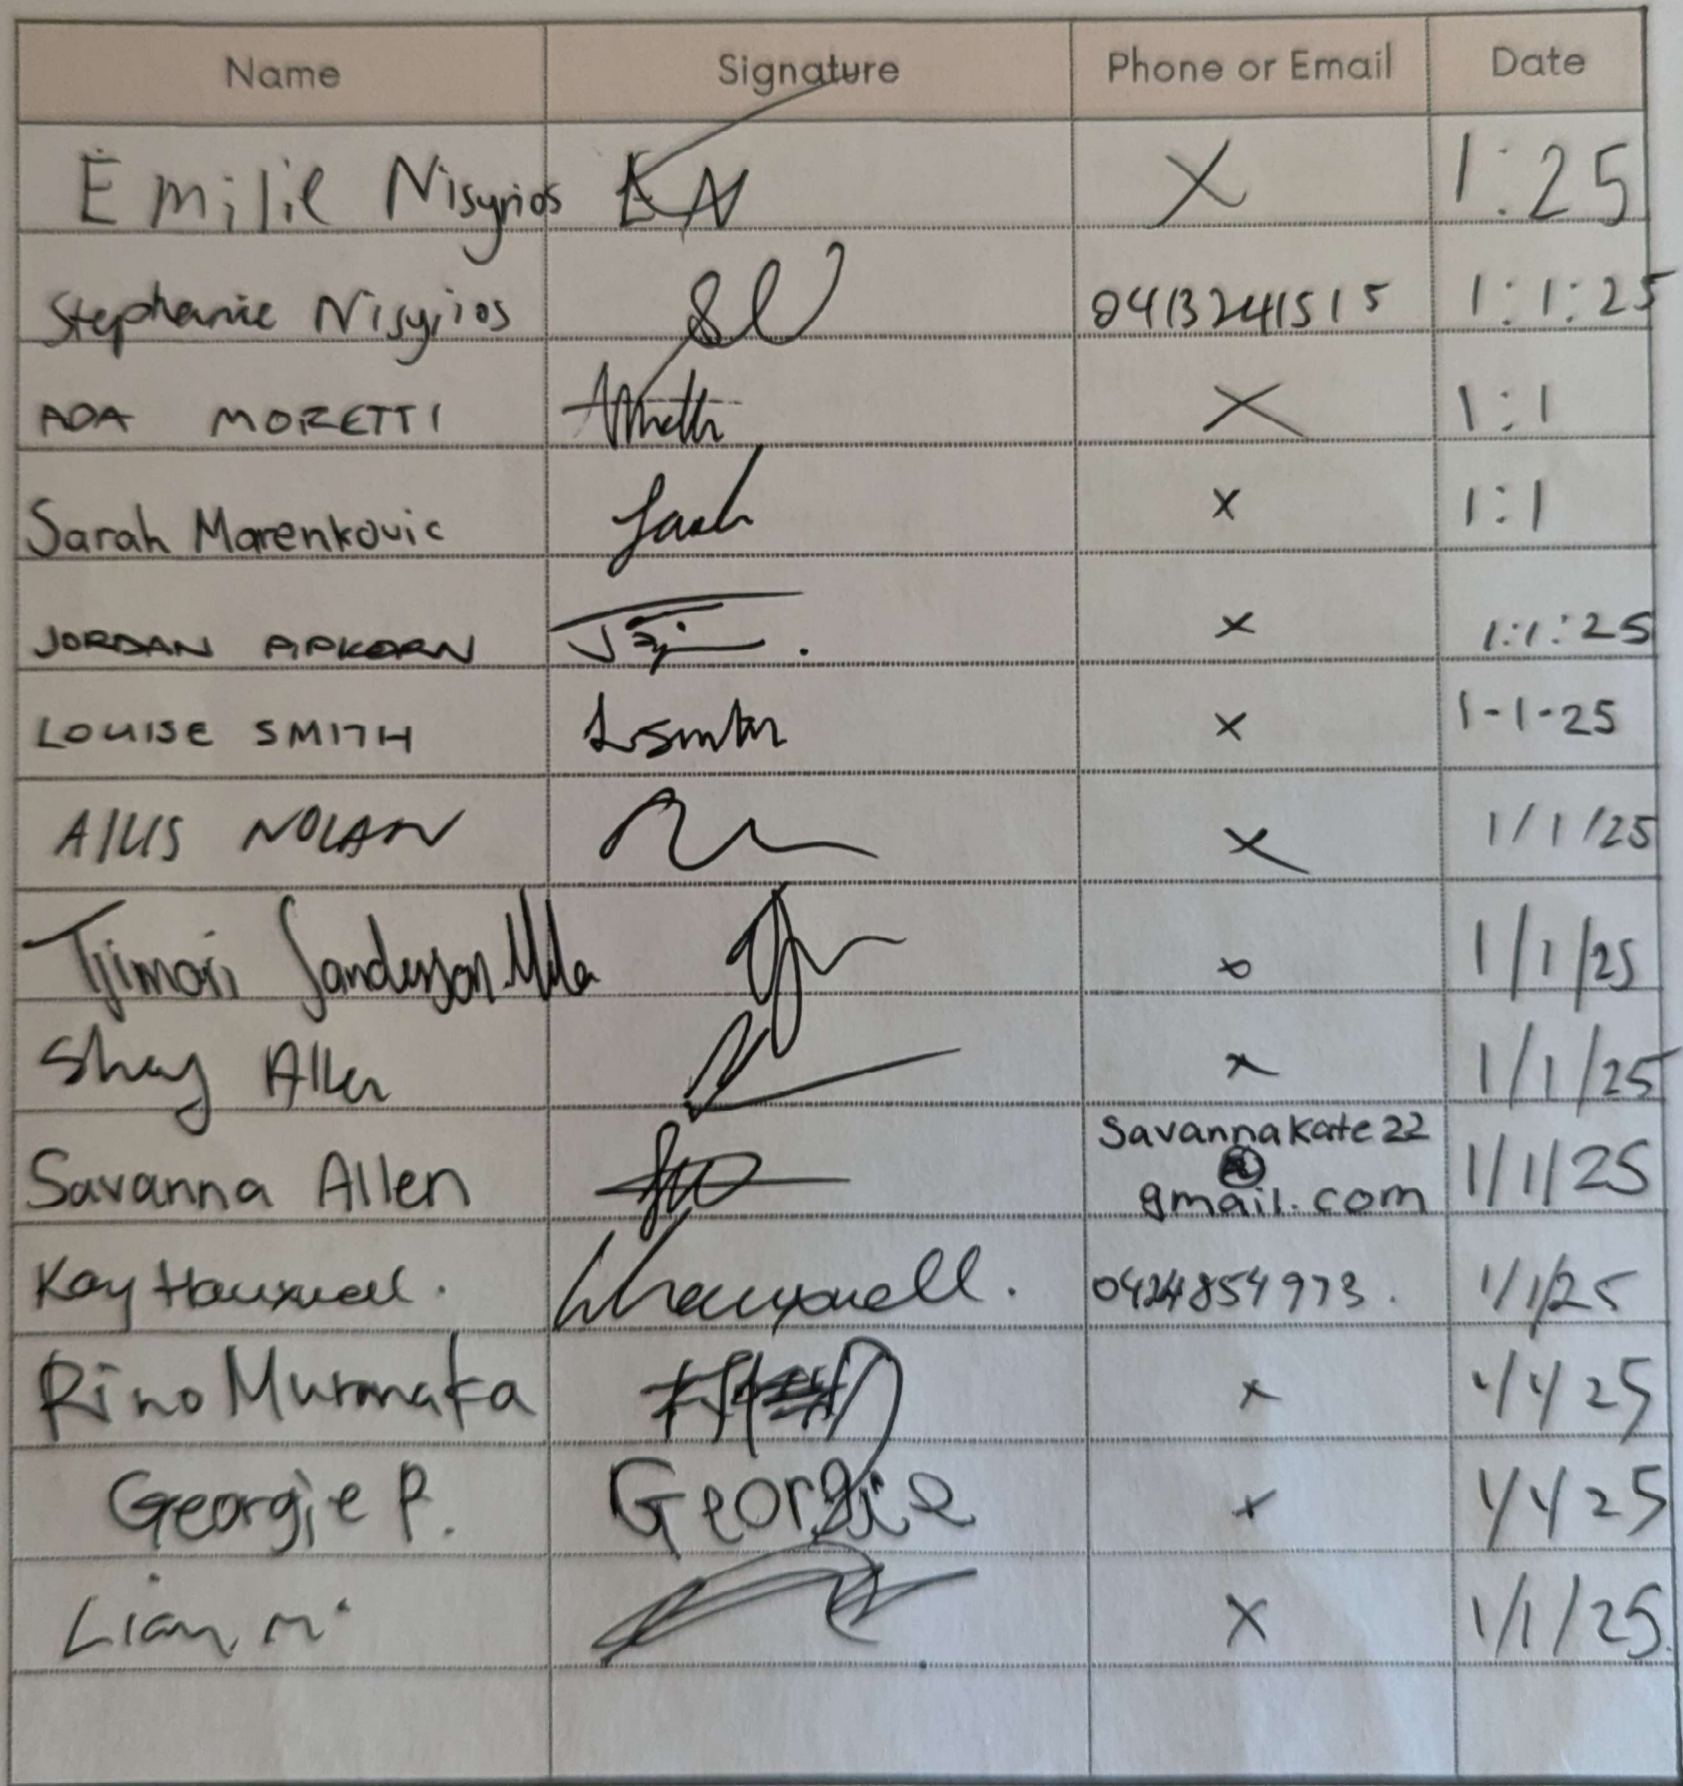 Name Signature Phone or Email Date
Emilie Nisyrios EN X 1:25
Stephanie Nisyrios SN 0413241515 1:1:25
ADA MORETTI X 1:1
Sarah Marenkovic Sarah X 1:1
JORDAN X 1:1:25
LOUISE SMITH L Smith X 1-1-25
NOLAN X 1/1/25
Tjimari Sanderson-Mila 1/1/25
Shay Allen X 1/1/25
Savanna Allen Savannakate22
@
gmail.com 1/1/25
Kay Hauxwell. khauxwell. 0424854973. 1/1/25
Rino Muranaka X 1/1/25
Georgie P. Georgie X 1/1/25
Liam M. X 1/1/25.